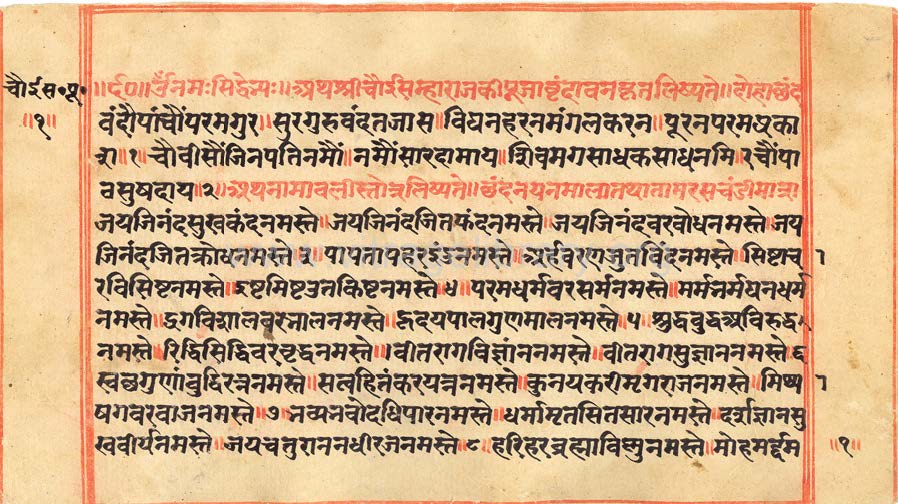 चौईस॰पू॰
॥१॥
॥८०॥ ॐनमःसिद्धेभ्यः॥अथश्रीचौईसम्हाराजकीपूजावृंदावनकृतलिष्यते॥दोहाछंद
वंदौपांचौंपरमगुर॥सुरगुरुवंदतजास॥विघनहरनमंगलकरन॥पूरनपरमप्रका
श॥१॥चौवीसौंजिनपतिनमौं॥नमौंसारदामाय॥शिवमगसाधकसाधनमि॥२चौंपा
वसुषदाय॥२॥अथनामावलीस्तोत्रलिष्यते॥छंदनयनमालातथातामरसचंडीमात्रा
जयजिनंदसुखकंदनमस्ते॥जयजिनंदजितफंदनमस्ते॥जयजिनंदवरवोधनमस्ते॥जय
जिनंदजितक्रोधनमस्ते॥३॥पापतापहरइंदुनमस्ते॥अर्हवरणजुतविंदनमस्ते॥सिष्टाच
रविसिष्टनमस्ते॥इष्टमिष्टउतकिष्टनमस्ते॥४॥परमधर्मवरसर्मनमस्ते॥मर्मभर्मघनधर्म
नमस्ते॥द्रगविशालवरभालनमस्ते॥हृदयपालगुणमालनमस्ते॥५॥शुद्धवुद्धअविरुद्ध
नमस्ते॥रिद्धिसिद्धिवरवृद्धनमस्ते॥वीतरागविज्ञांननमस्ते॥वीतरागसुज्ञाननमस्ते॥६
स्वछगुणांवुदिरत्ननमस्ते॥सत्वहितंकरयत्ननमस्ते॥कुनयकरीमृगराजनमस्ते॥मिथ्य
षगवरवाजनमस्ते॥७॥भव्यभवोदधिपारनमस्ते॥धर्मामृतसितसारनमस्ते॥दर्शज्ञानसु
खवीर्यनमस्ते॥जयचतुराननधीरजनमस्ते॥८॥हरिहरव्रह्माविष्णुनमस्ते॥मोहमर्द्दम
॥१॥